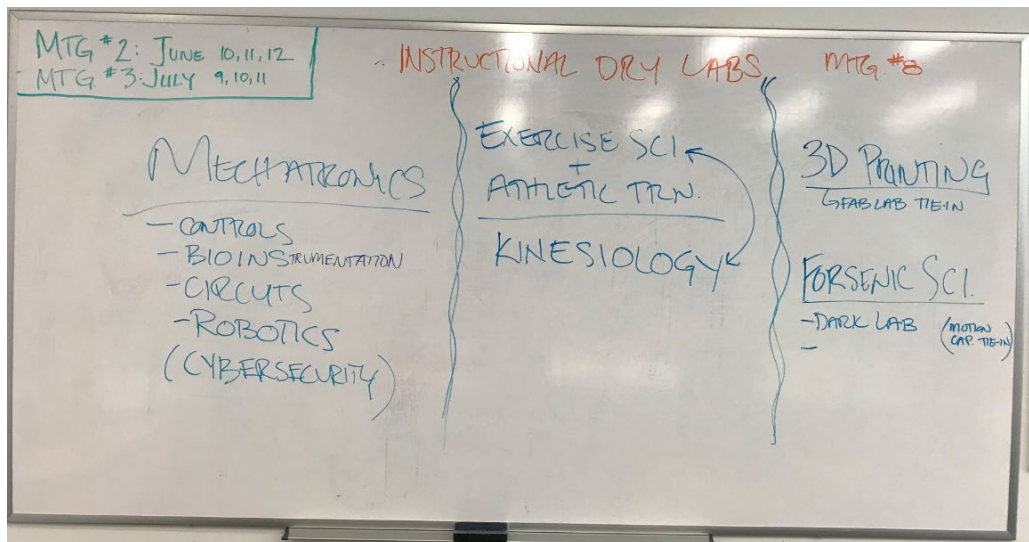 MTG #2: JUNE 10, 11, 12
MTG #3: JULY 9, 10, 11
INSTRUCTIONAL DRY LABS
MTG #8
MECHATRONICS
- CONTROLS
- BIOINSTRUMENTATION
- CIRCUTS
- ROBOTICS
(CYBERSECURITY)
EXERCISE SCI
+
ATHLETIC TRN.
KINESIOLOGY
3D PRINTING
↳ FAB LAB TIE-IN
FORSENIC SCI.
- DARK LAB (MOTION
CAP. TIE-IN)
-